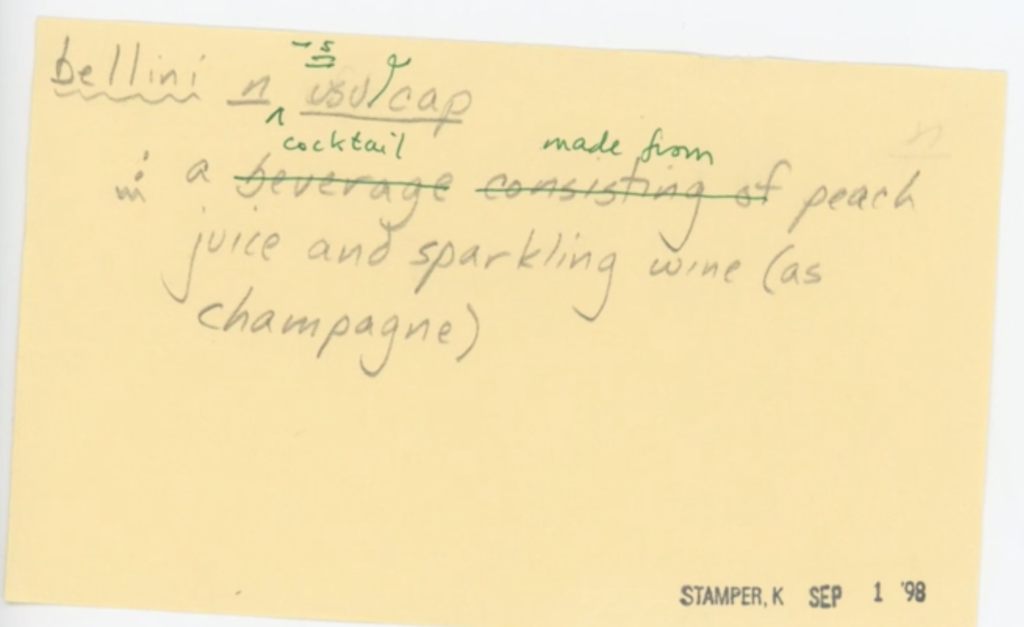 -s
bellini n usu cap
cocktail made from
: a beverage consisting of peach
juice and sparkling wine (as
champagne)
n
STAMPER, K SEP 1 '98